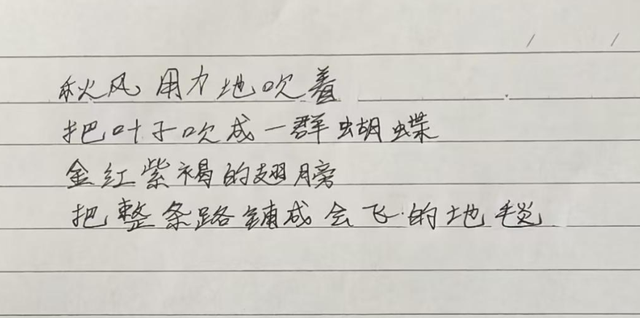 秋风用力地吹着
把叶子吹成一群蝴蝶
金红紫褐的翅膀
把整条路铺成会飞的地毯